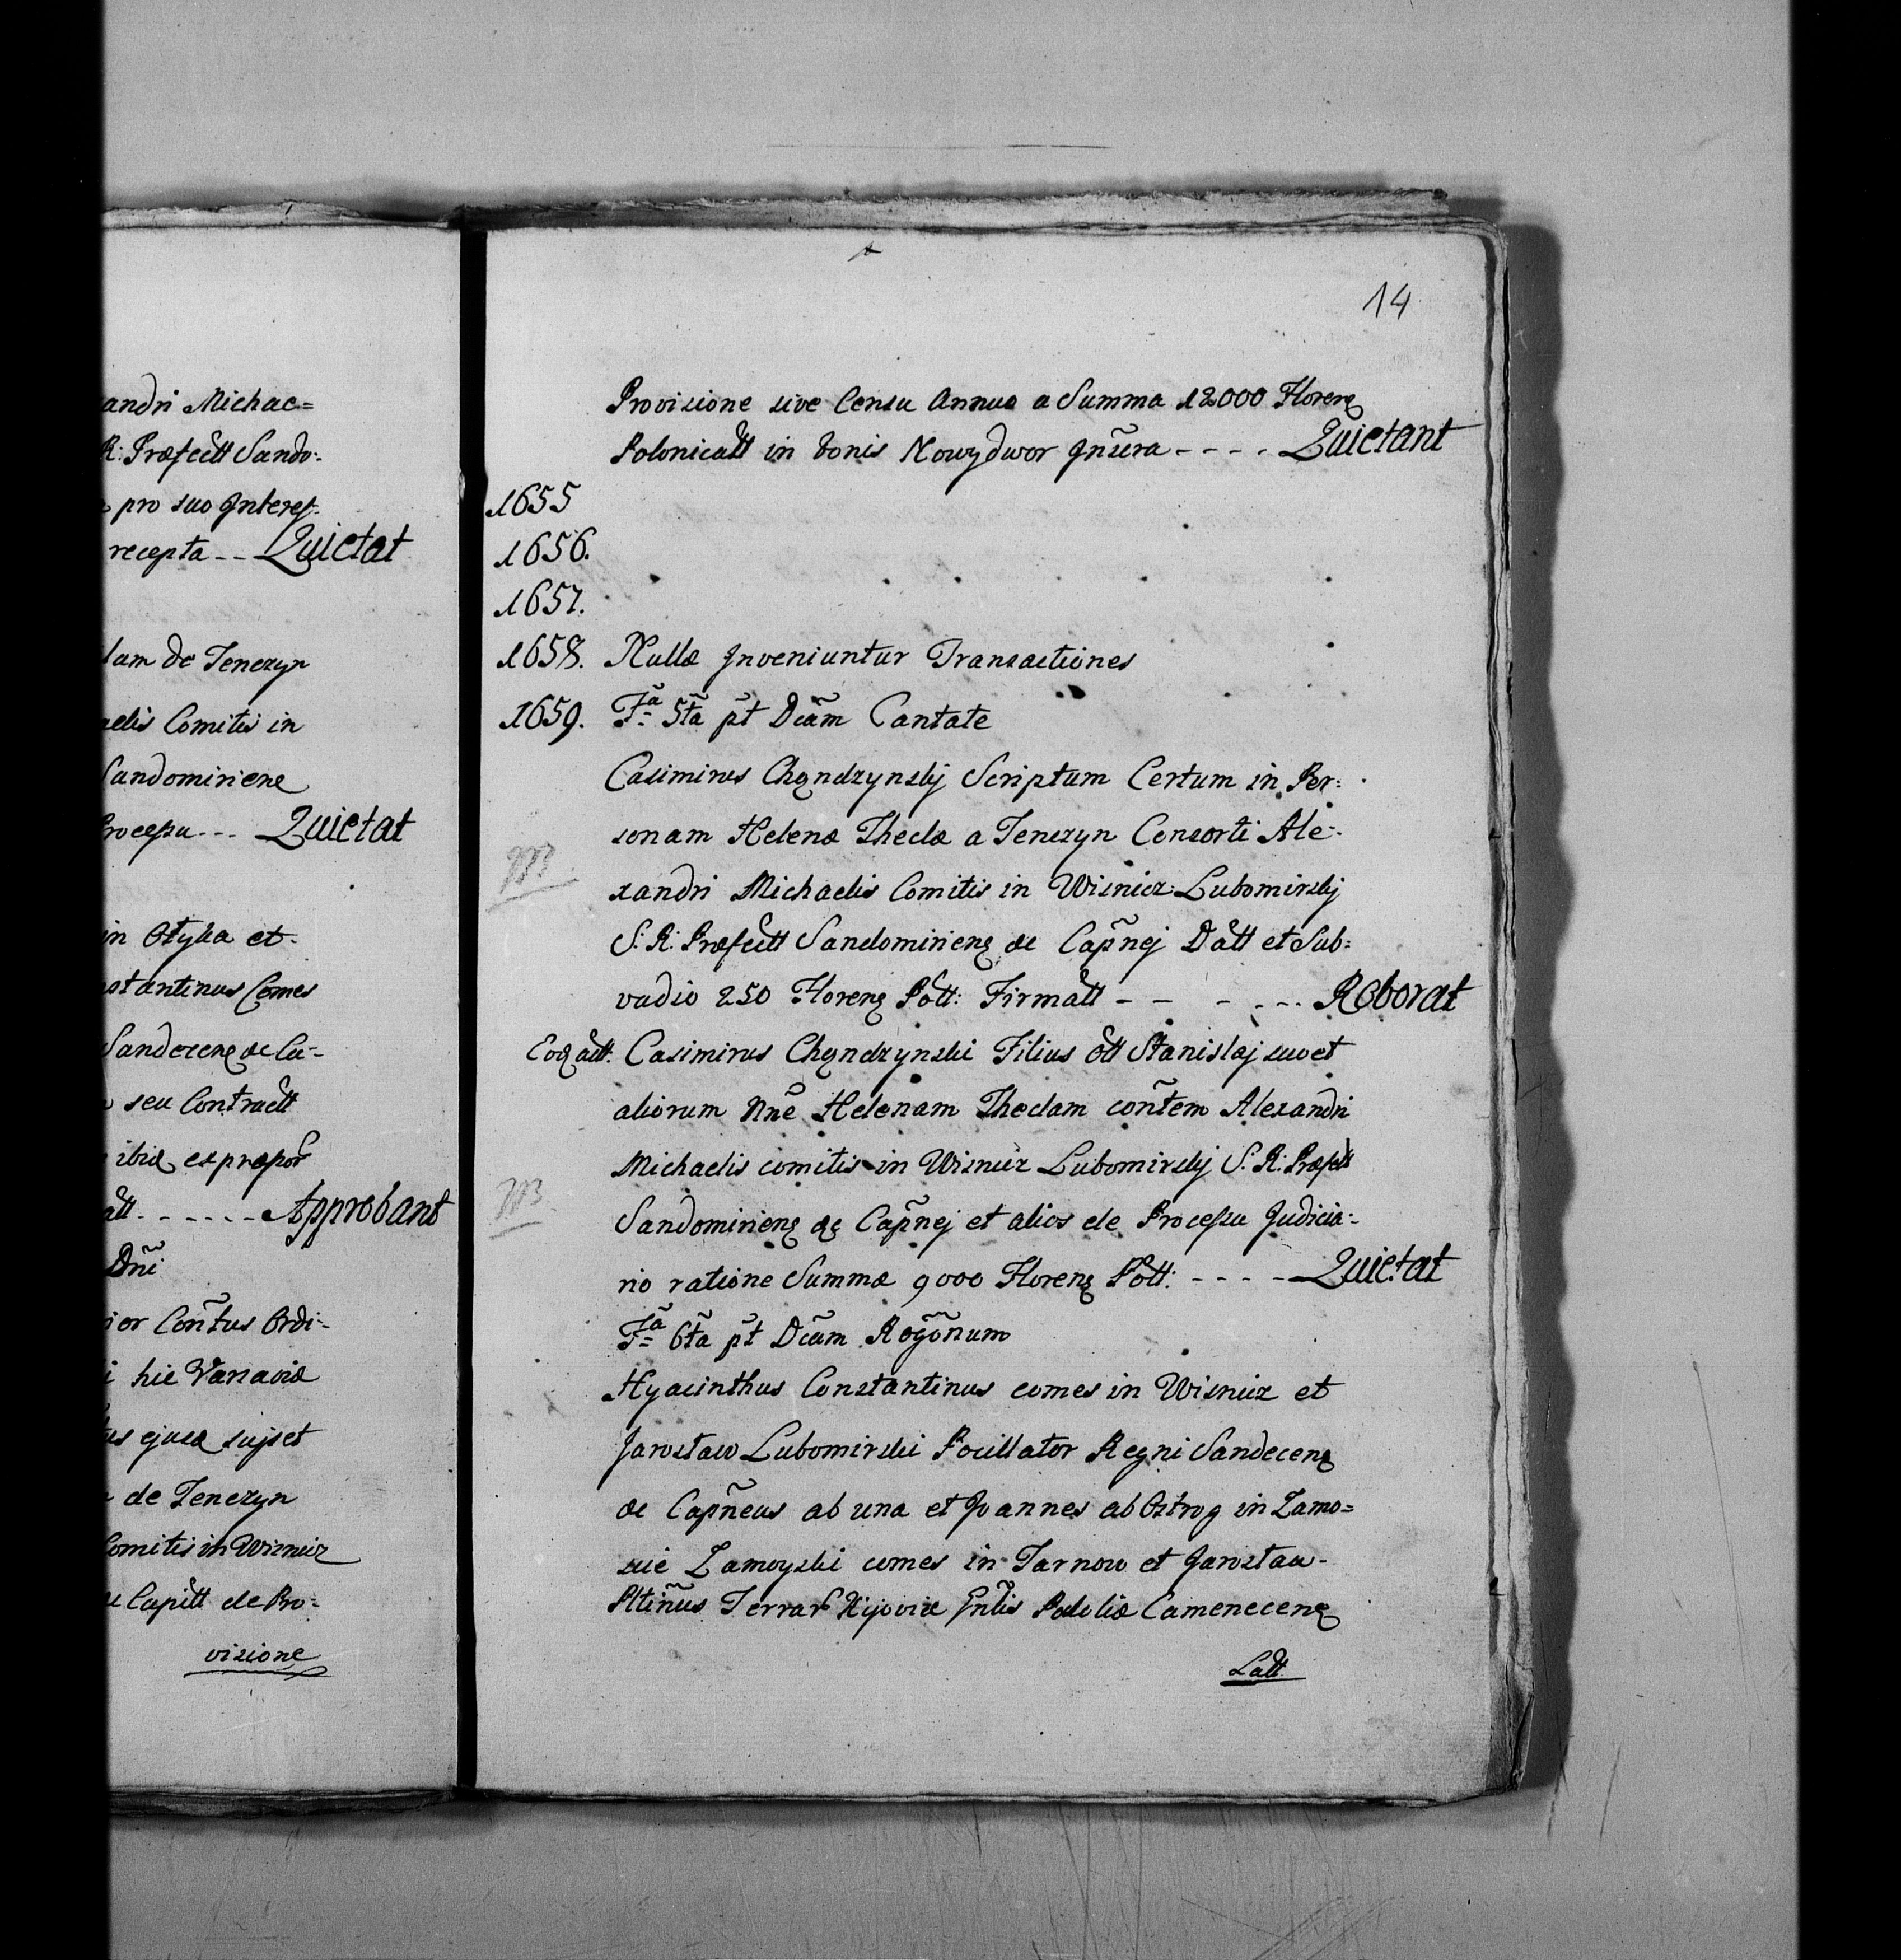 andri Michae=
R: Præfectt Sando:
pro suo Interess:
recepta -- Quietat
lam de Tenczyn
aelis Comitis in
Sandomiriene
Processu --- Quietat
in Otyka et
nstantinus Comes
Sandecens ac Ca=
seu Contractt
ibid ex propor
att ------ Approbant
Dni
ior Contus Ordi=
hic Varsaviæ
us ejusd suj et
de Tenczyn
Comitis in Wisnicz
Capitt de Pro=
visione
14
Provisione sive Censu Annuo a Summa 12000 Floreng
Polonicatt in bonis Nowydwor Insera ---- Quietant
1655
1656.
1657.
1658. Nullæ Inveniuntur Transactiones
1659. Fa 5ta pt Dcam Cantate
Casimirus Chądzynskj Scriptum Certum in Per=
sonam Helenæ Theclæ a Tenczyn Consorti Ale=
xandri Michaelis Comitis in Wisnicz Lubomirskj
S: R: Præfectt Sandomiriens ac Capnej Datt et Sub=
vadio 250 Floreng Pott: Firmatt - - - --- Roborat
Eog actt: Casimirus Chądzynski Filius Ott Stanislaj suo et
aliorum Nne Helenam Theclam contem Alexandri
Michaelis comitis in Wisnicz Lubomirskj S: R: Præfett
Sandomiriens ac Capnej et alios de Processu Judicia=
rio ratione Summæ 9000 Floreng Pott: ---- Quietat
Fa 6ta pt Dcam Rogonum
Hyacinthus Constantinus comes in Wisnicz et
Jarosław Lubomirski Pocillator Regni Sandecens
ac Capneus ab una et Joannes ab Ostrog in Zamo=
scie Zamoyski comes in Tarnow et Jarosław
Pltinus Terrar Kijoviæ Gnlis Podoliæ Camenecens
Latt